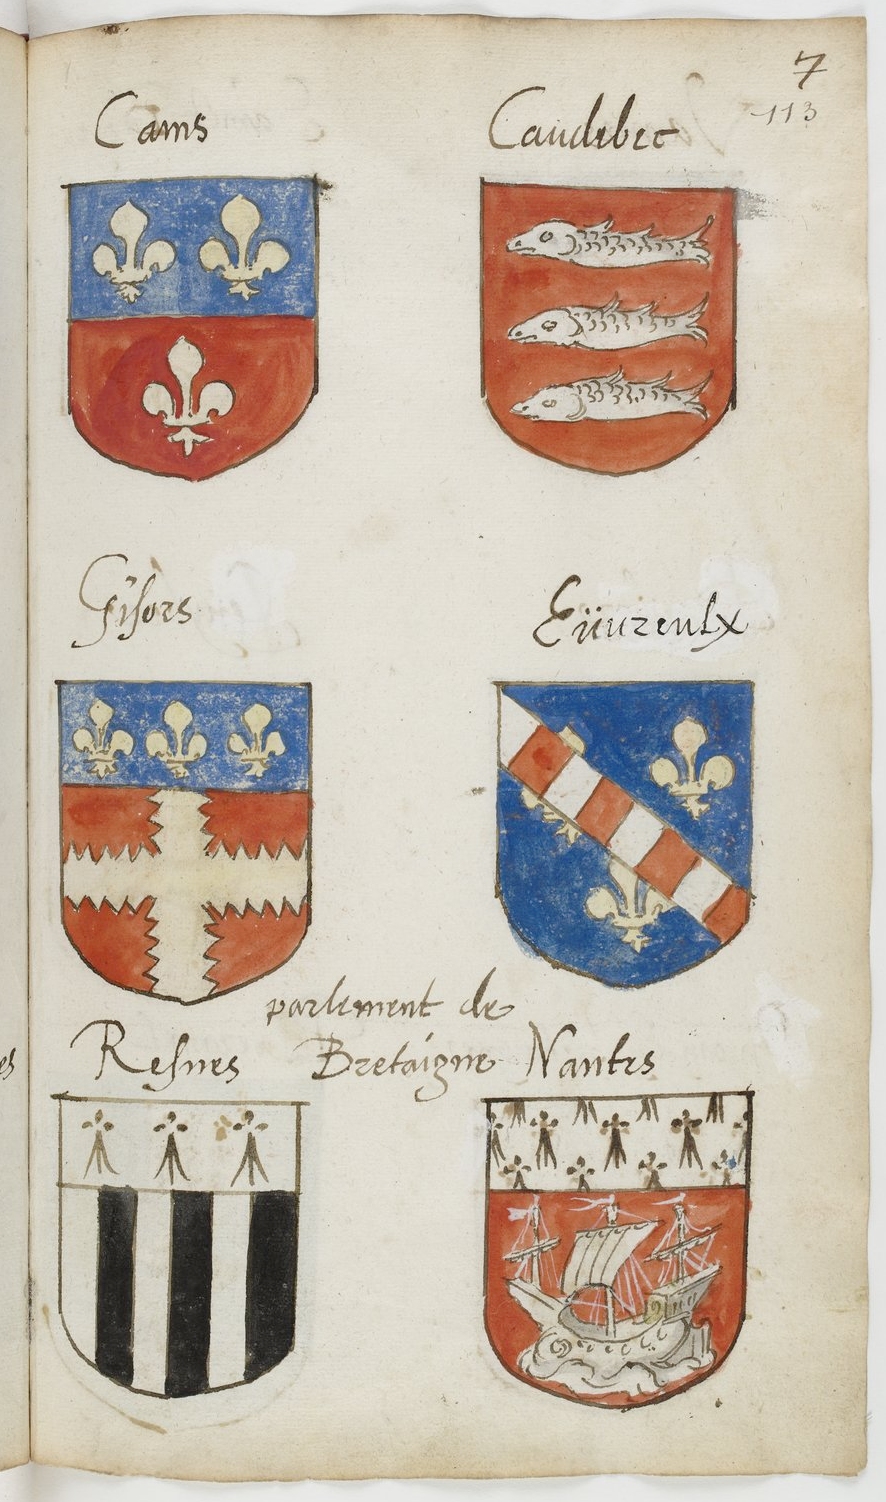 7
113
Cams
Caudebec
Gisors
Eüvreulx
parlement de
Resnes Bretaigne Nantes
es